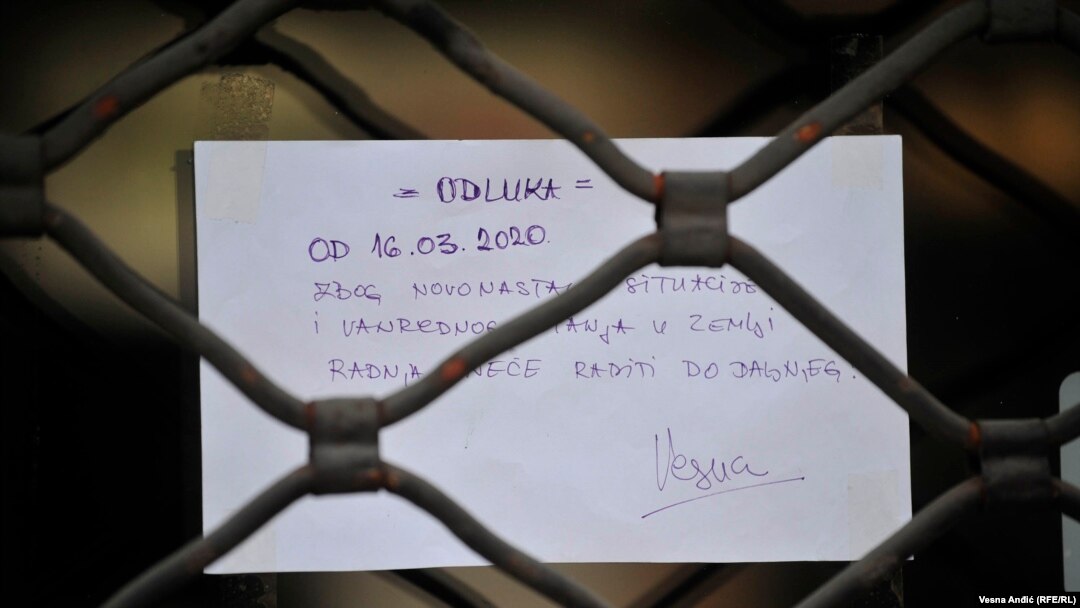 = ODLUKA =
OD 16.03.2020.
ZBOG NOVONASTALE SITUACIJE
I VANREDNOG STANJA U ZEMLJI
RADNJA NEĆE RADITI DO DALJNJEG.
Vesna
Vesna Anđić (RFE/RL)